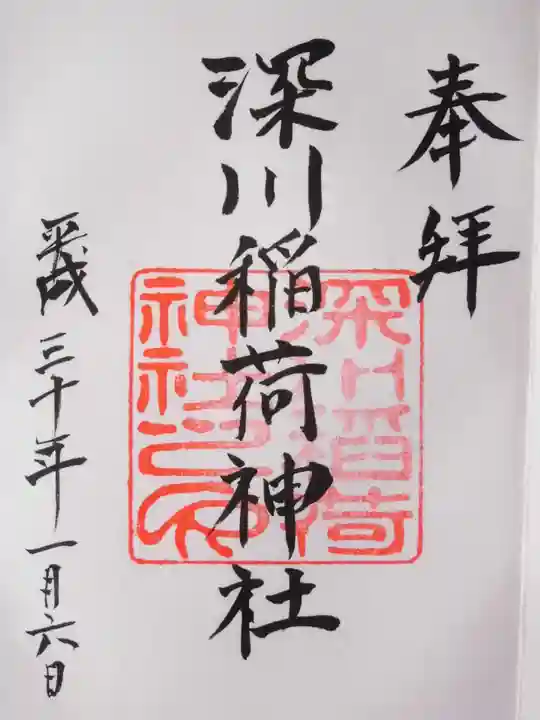 奉拝
深川稲荷神社
深川稲荷
神社之印
平成三十年一月六日